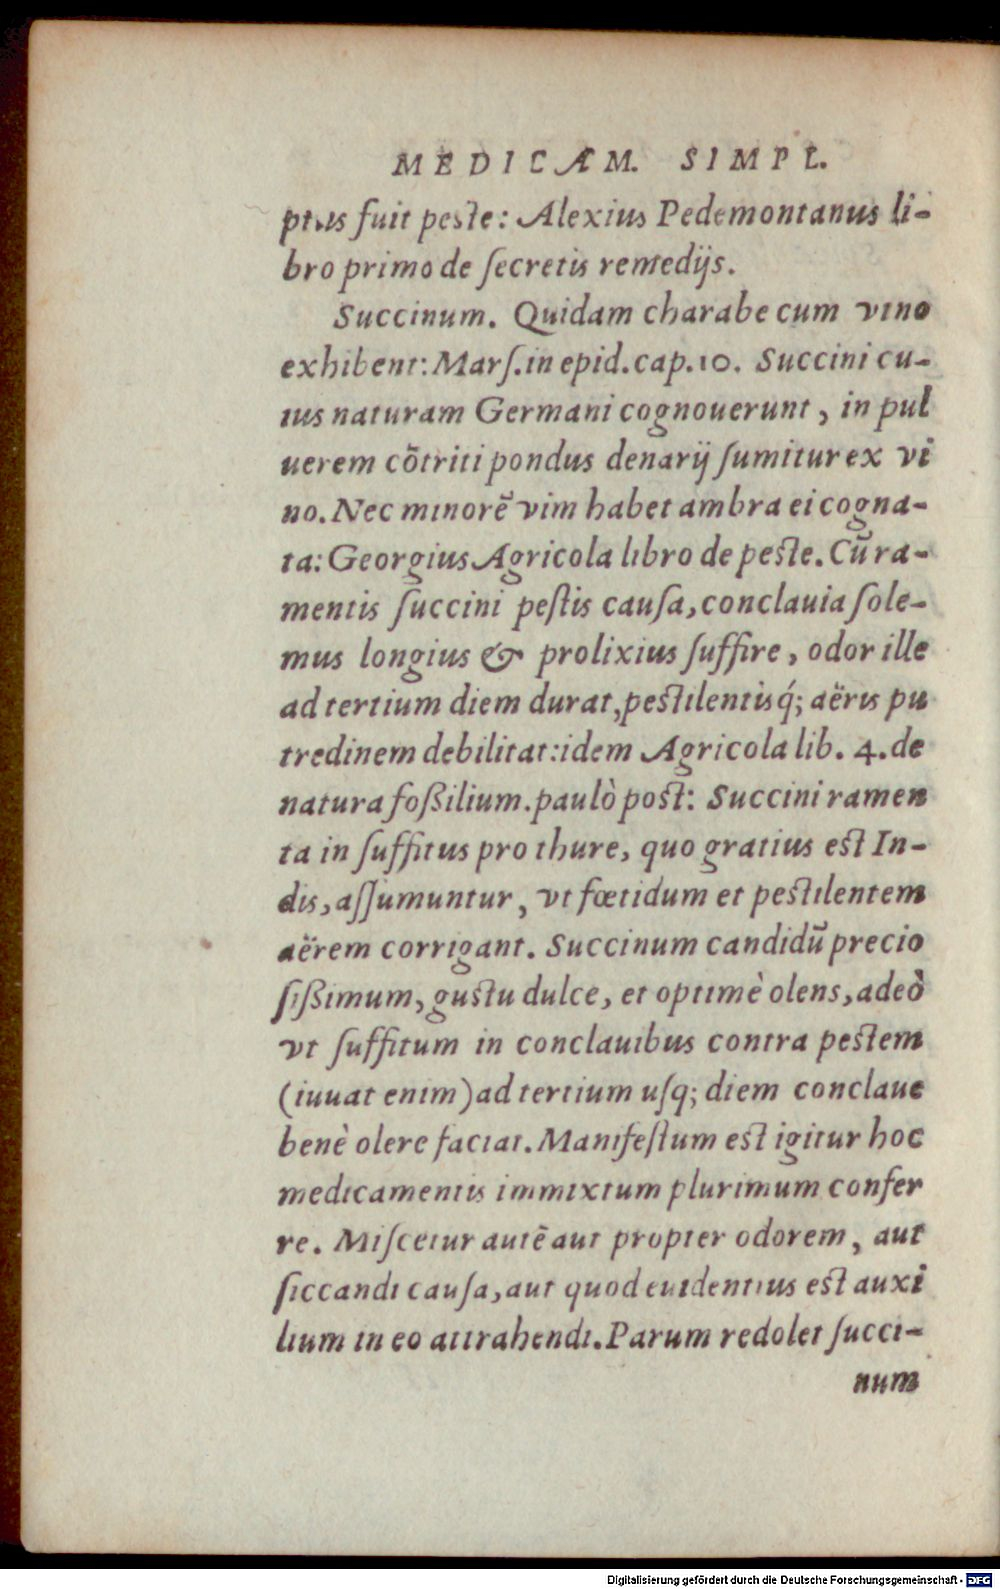 MEDICAM. SIMPL.
ptus fuit peste: Alexius Pedemontanus li-
bro primo de ſecretis remedijs.
Succinum. Quidam charabe cum vino
exhibent: Marſ. in epid. cap. 10. Succini cu-
ius naturam Germani cognouerunt, in pul
uerem cõtriti pondus denarij ſumitur ex vi
no. Nec minorẽ vim habet ambra ei cogna-
ta: Georgius Agricola libro de peste. Cũ ra-
mentis ſuccini peſtis cauſa, conclauia ſole-
mus longius & prolixius ſuffire, odor ille
ad tertium diem durat, pestilentisq́; aëris pu
tredinem debilitat: idem Agricola lib. 4. de
natura foßilium. paulò post: Succini ramen
ta in ſuffitus pro thure, quo gratius est In-
dis, aſſumuntur, vt fœtidum et pestilentem
aërem corrigant. Succinum candidũ precio
ſißimum, gustu dulce, et optimè olens, adeò
vt ſuffitum in conclauibus contra pestem
(iuuat enim) ad tertium uſq; diem conclaue
benè olere faciat. Manifeſtum est igitur hoc
medicamentis immixtum plurimum confer
re. Miſcetur autẽ aut propter odorem, aut
ſiccandi cauſa, aut quod euidentius est auxi
lium in eo attrahendi. Parum redolet ſucci-
num
Digitalisierung gefördert durch die Deutsche Forschungsgemeinschaft - DFG